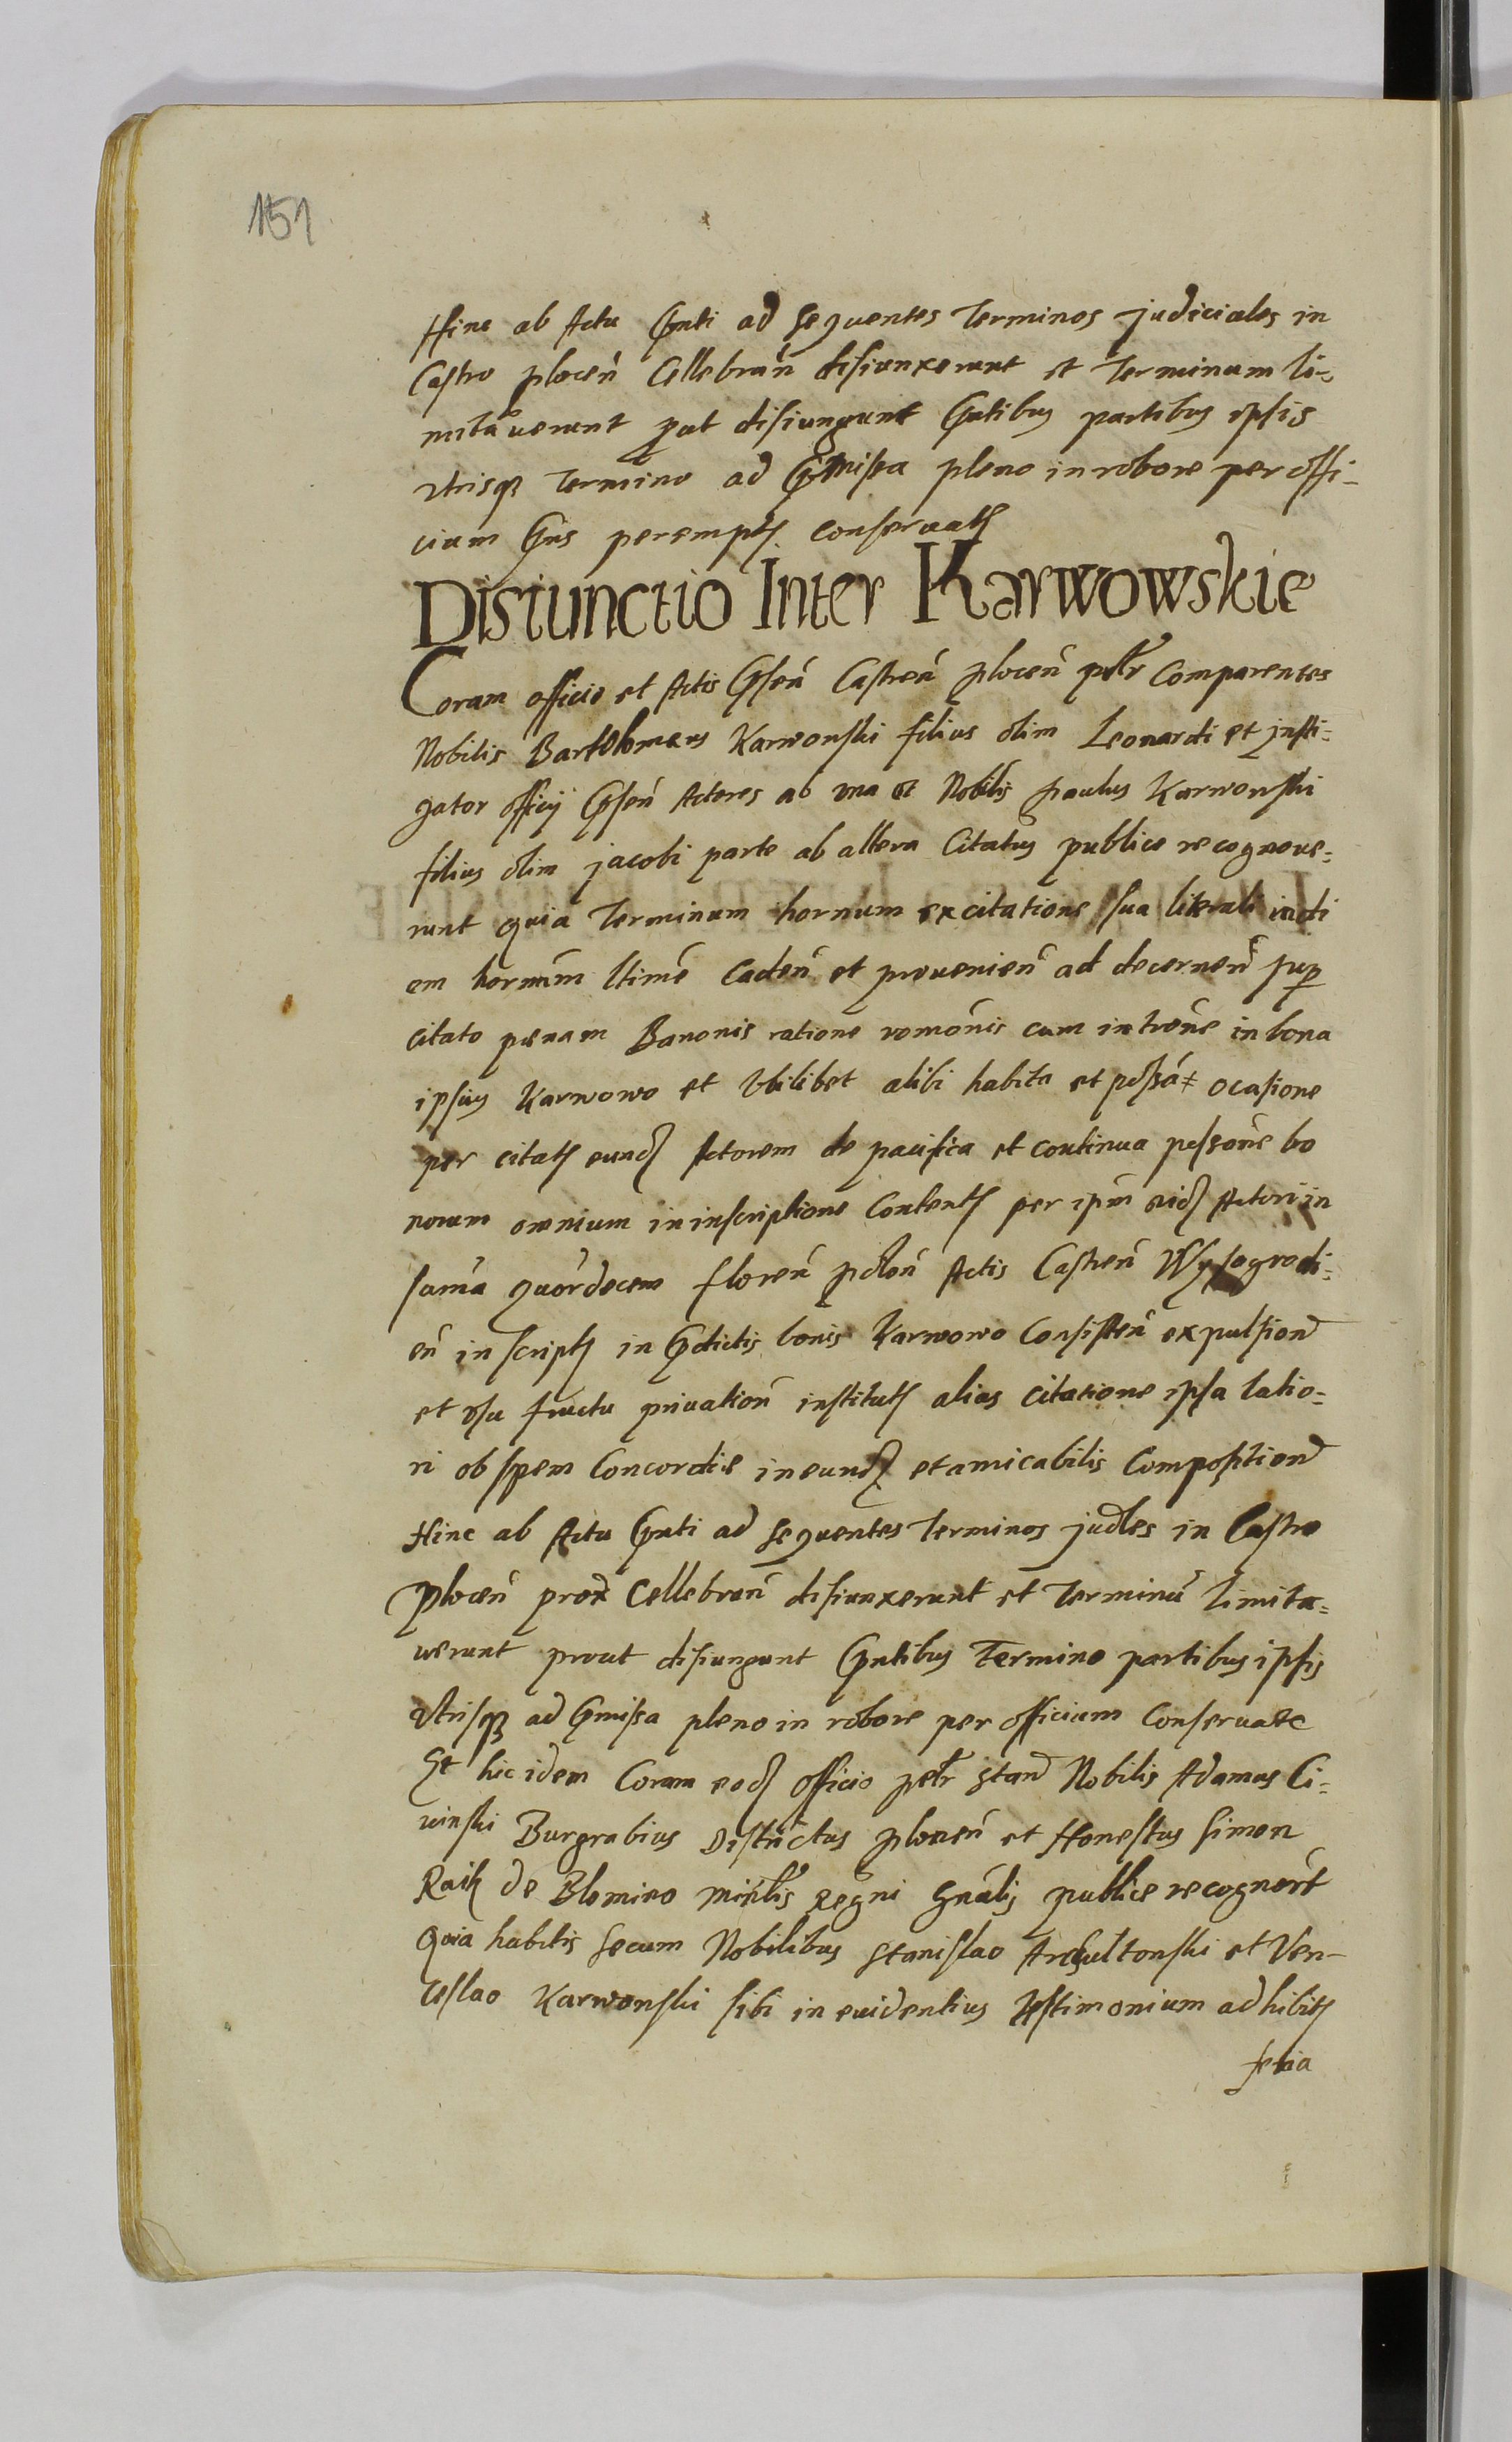 151
Hinc ab Actu Gnti ad sequentes Terminos judiciales in
Castro plocen̄ Cellebran̄ disiunxerunt et Terminum li-
mitauerunt put disiungunt Gntibus partibus ipsis
vtrisq3 Termino ad Gmissa pleno in robore per offi-
cium Gns perempt conseruat
Disiunctio Inter Karwowskie
Coram officio et Actis Gsen̄ Castren̄ plocen̄ plr Comparentes
Nobilis Bartolomeus Karwonski filius olim Leonardi et justi=
gator officij Gsen̄ Actores ab vna et Nobilis paulus Karwonski
filius olim jacobi parte ab altera Citatus publice recognoue=
runt quia Terminum hornum ex citatione sua literali in di
em hornum ltime Caden̄ et prouenien̄ ad decernen̄ sup
citato penam Banonis ratione romōnis cum intrōne in bona
ipsius Karwowo et Vbilibet alibi habita et possā ocasione
per citat eund Actorem de pacifica et continua possōne bo
norum omnium in inscriptione Content per ipm eid Actori in
suma quordecem floren̄ polon̄ Actis Castren̄ Wysogrodi=
en̄ inscript in Gdictis bonis Karwowo Consisten̄ expulsion
et vsu fructu priuation̄ institut alias citatione ipsa latio=
ri ob spem Concordie ineund et amicabilis Composition
Hinc ab Actu Gnti ad sequentes Terminos judles in Castro
Plocen̄ prox Cellebran̄ disiunxerunt et Terminū limita=
uerunt prout disiungunt Gntibus Termino partibus ipsis
vtrisq3 ad Gmissa pleno in robore per officium Conseruate
Et hic idem Coram eod officio petr stan Nobilis Adamus Ci=
uinski Burgrabius Districtus plocen̄ et Honestus Simon
Raik de Blomino minlis Regni Gnālis publice recognort
Quia habitis secum Nobilibus Stanislao et Ven-
ceslao Karwonski sibi in euidentius testimonium adhibit
feria